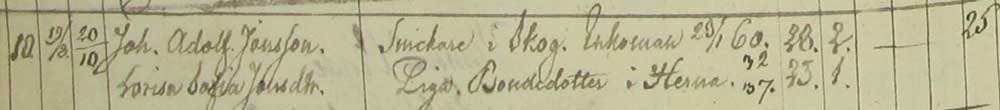 10. 19/8. 20/10 Joh. Adolf. Jonsson. Snickare i Skog. Enkoman 25/1 60. 28. 2. — 25
Lovisa Sofia Jonsdtr. Piga. Bondedotter i Herna. 32 37. 23. 1.